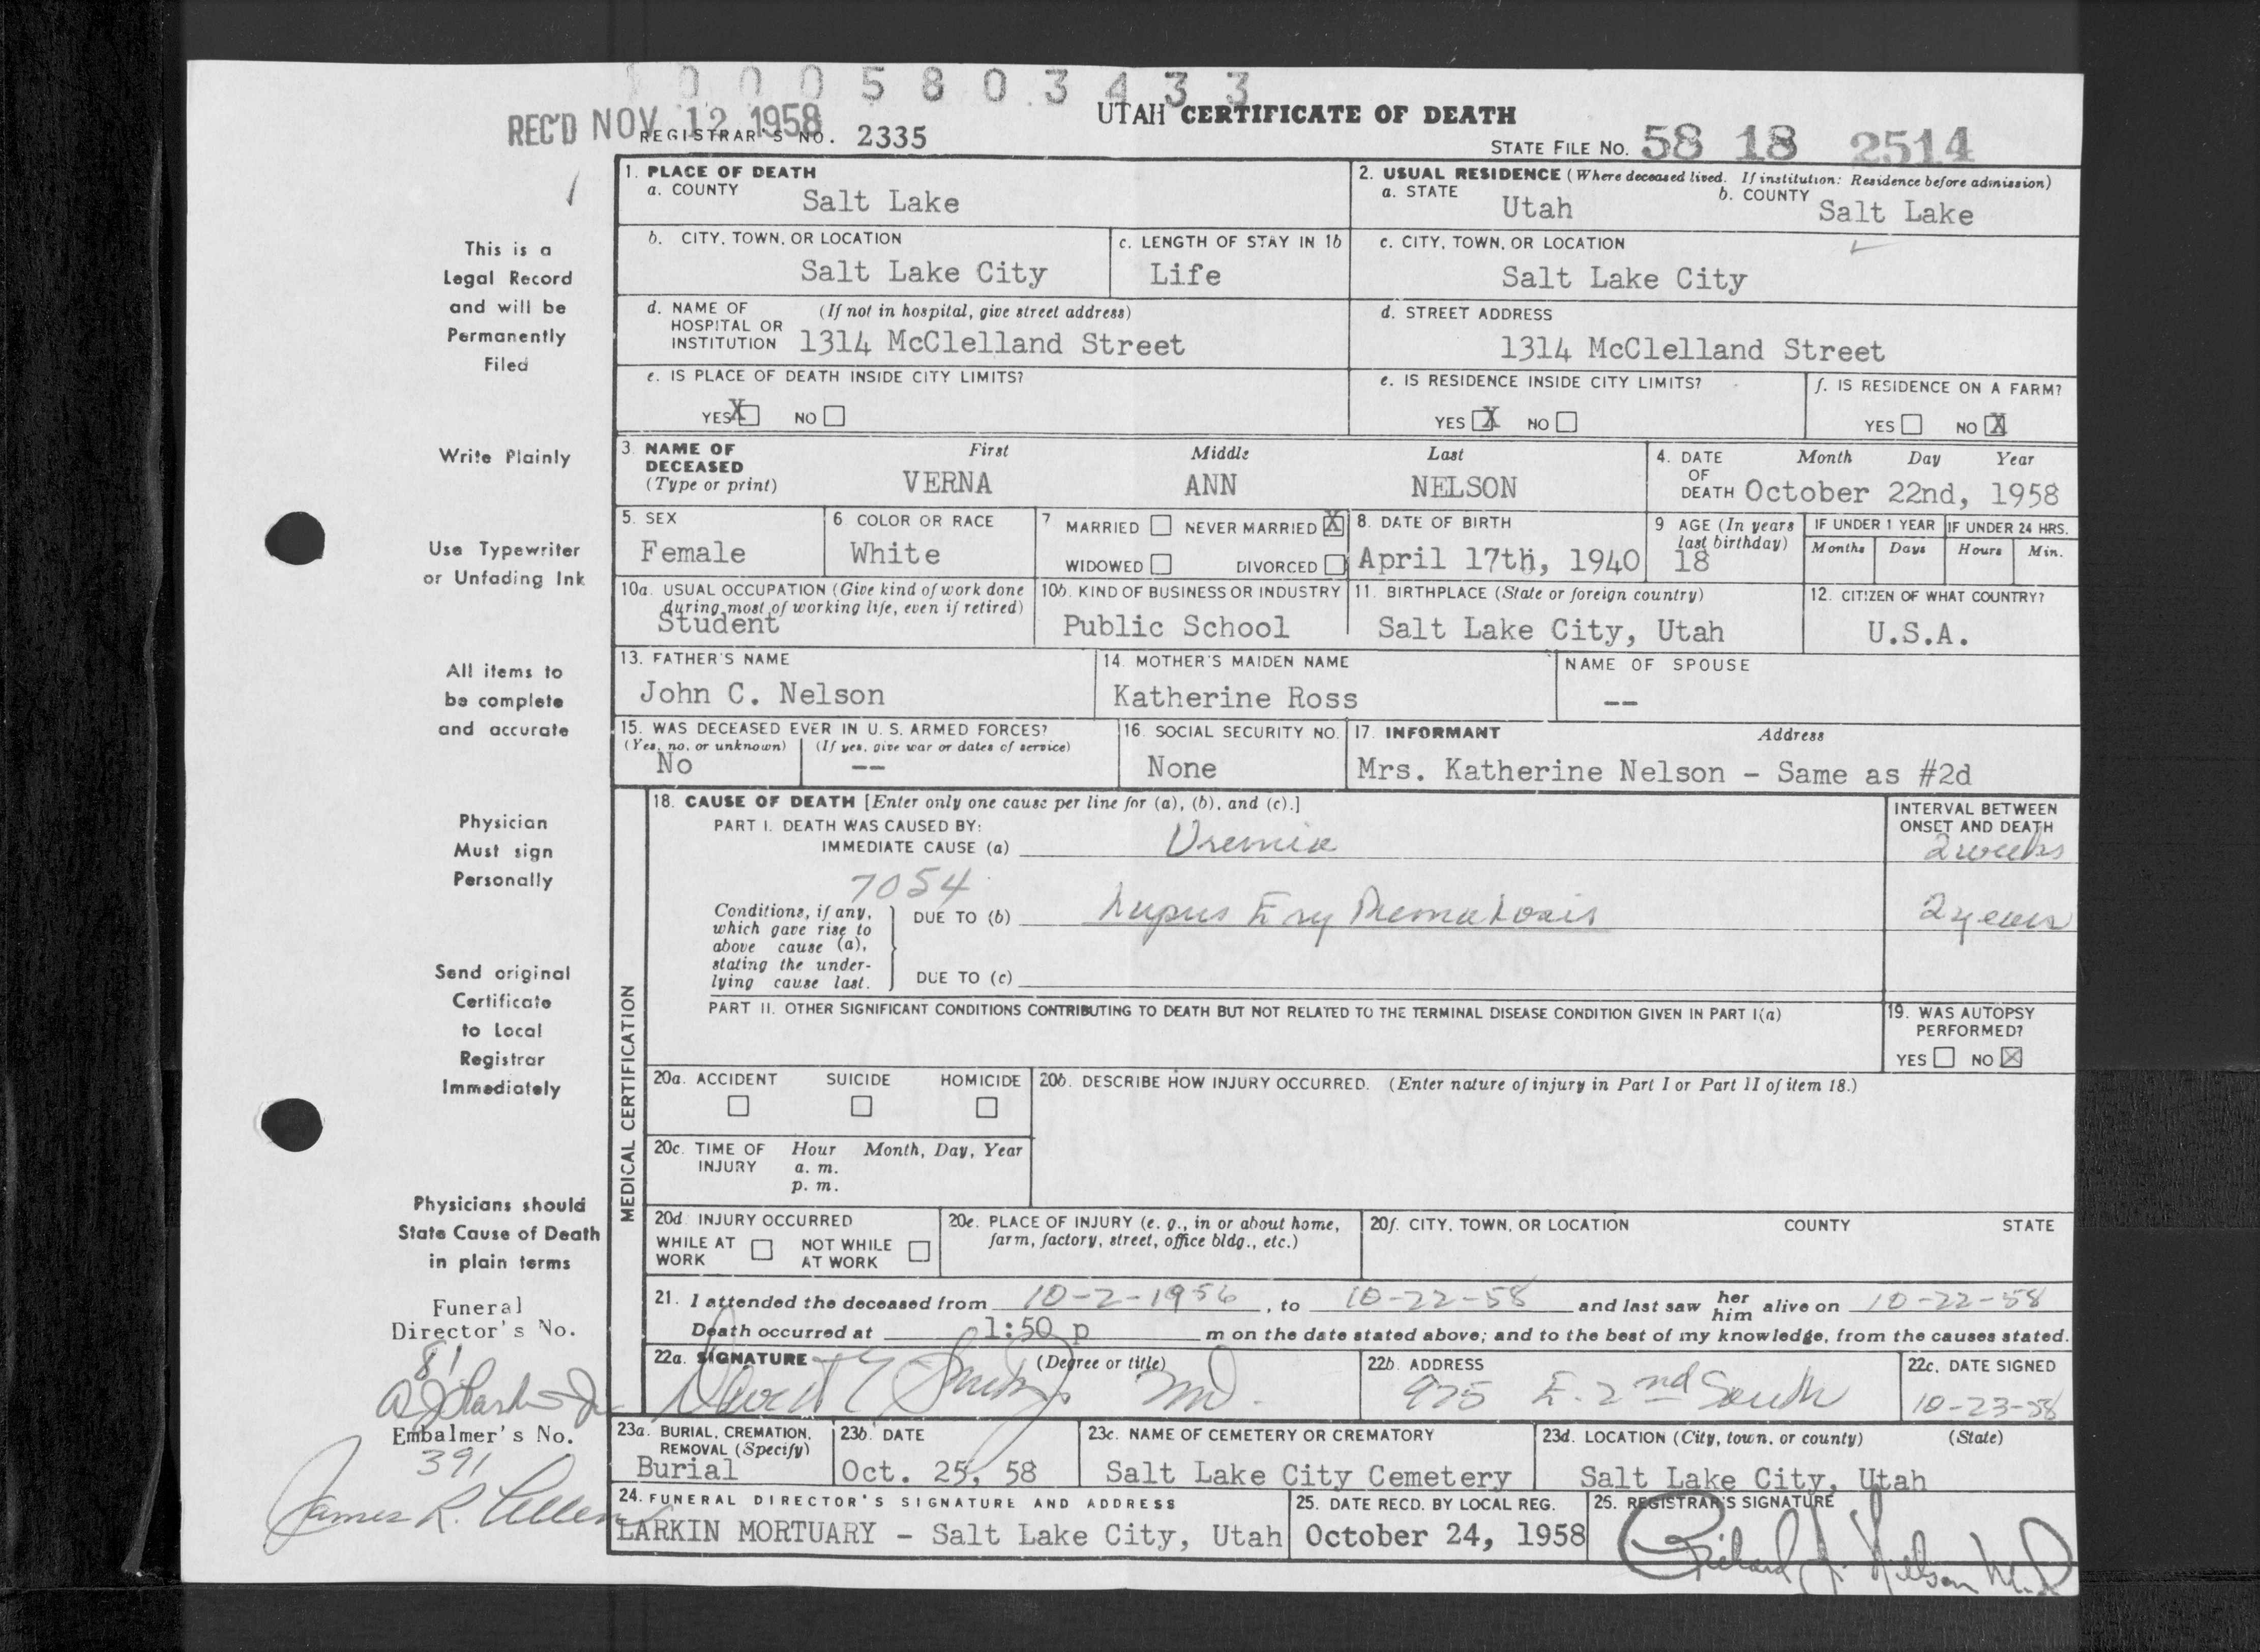 0 0 0 5 8 0 3 4 3 3
REC'D NOV 12 1958
UTAH CERTIFICATE OF DEATH
REGISTRAR'S NO. 2335
STATE FILE No. 58 18 2514
This is a
Legal Record
and will be
Permanently
Filed
Write Plainly
Use Typewriter
or Unfading Ink
All items to
be complete
and accurate
Physician
Must sign
Personally
Send original
Certificate
to Local
Registrar
Immediately
Physicians should
State Cause of Death
in plain terms
Funeral
Director's No.
81
Embalmer's No.
391
James R.
1. PLACE OF DEATH
a. COUNTY Salt Lake
2. USUAL RESIDENCE (Where deceased lived. If institution: Residence before admission)
a. STATE Utah b. COUNTY Salt Lake
b. CITY, TOWN, OR LOCATION Salt Lake City
c. LENGTH OF STAY IN 1b Life
c. CITY, TOWN, OR LOCATION Salt Lake City
d. NAME OF HOSPITAL OR INSTITUTION (If not in hospital, give street address) 1314 McClelland Street
d. STREET ADDRESS 1314 McClelland Street
e. IS PLACE OF DEATH INSIDE CITY LIMITS?
YES X NO
e. IS RESIDENCE INSIDE CITY LIMITS?
YES X NO
f. IS RESIDENCE ON A FARM?
YES NO X
3. NAME OF DECEASED (Type or print) First Middle Last
VERNA ANN NELSON
4. DATE OF DEATH Month Day Year
October 22nd, 1958
5. SEX Female
6 COLOR OR RACE White
7 MARRIED NEVER MARRIED X
WIDOWED DIVORCED
8. DATE OF BIRTH April 17th, 1940
9 AGE (In years last birthday) 18
IF UNDER 1 YEAR Months Days
IF UNDER 24 HRS. Hours Min.
10a. USUAL OCCUPATION (Give kind of work done during most of working life, even if retired) Student
10b. KIND OF BUSINESS OR INDUSTRY Public School
11. BIRTHPLACE (State or foreign country) Salt Lake City, Utah
12. CITIZEN OF WHAT COUNTRY? U.S.A.
13. FATHER'S NAME John C. Nelson
14. MOTHER'S MAIDEN NAME Katherine Ross
NAME OF SPOUSE --
15. WAS DECEASED EVER IN U. S. ARMED FORCES?
(Yes, no, or unknown) No (If yes, give war or dates of service) --
16. SOCIAL SECURITY NO. None
17. INFORMANT Address
Mrs. Katherine Nelson - Same as #2d
MEDICAL CERTIFICATION
18. CAUSE OF DEATH [Enter only one cause per line for (a), (b), and (c).]
INTERVAL BETWEEN ONSET AND DEATH
PART I. DEATH WAS CAUSED BY:
IMMEDIATE CAUSE (a) Uremia 2 weeks
7054
Conditions, if any, which gave rise to above cause (a), stating the underlying cause last.
DUE TO (b) Lupus Ery 2 years
DUE TO (c)
PART II. OTHER SIGNIFICANT CONDITIONS CONTRIBUTING TO DEATH BUT NOT RELATED TO THE TERMINAL DISEASE CONDITION GIVEN IN PART I(a)
19. WAS AUTOPSY PERFORMED?
YES NO X
20a. ACCIDENT SUICIDE HOMICIDE
20b. DESCRIBE HOW INJURY OCCURRED. (Enter nature of injury in Part I or Part II of item 18.)
20c. TIME OF INJURY Hour a. m. p. m. Month, Day, Year
20d. INJURY OCCURRED
WHILE AT WORK NOT WHILE AT WORK
20e. PLACE OF INJURY (e. g., in or about home, farm, factory, street, office bldg., etc.)
20f. CITY, TOWN, OR LOCATION COUNTY STATE
21. I attended the deceased from 10-2-1956, to 10-22-58 and last saw her him alive on 10-22-58
Death occurred at 1:50 p m on the date stated above; and to the best of my knowledge, from the causes stated.
22a. SIGNATURE (Degree or title)
MD.
22b. ADDRESS 975 E. 2nd South
22c. DATE SIGNED 10-23-58
23a. BURIAL, CREMATION, REMOVAL (Specify) Burial
23b. DATE Oct. 25, 58
23c. NAME OF CEMETERY OR CREMATORY Salt Lake City Cemetery
23d. LOCATION (City, town, or county) (State) Salt Lake City, Utah
24. FUNERAL DIRECTOR'S SIGNATURE AND ADDRESS
LARKIN MORTUARY - Salt Lake City, Utah
25. DATE RECD. BY LOCAL REG. October 24, 1958
26. REGISTRAR'S SIGNATURE
Richard